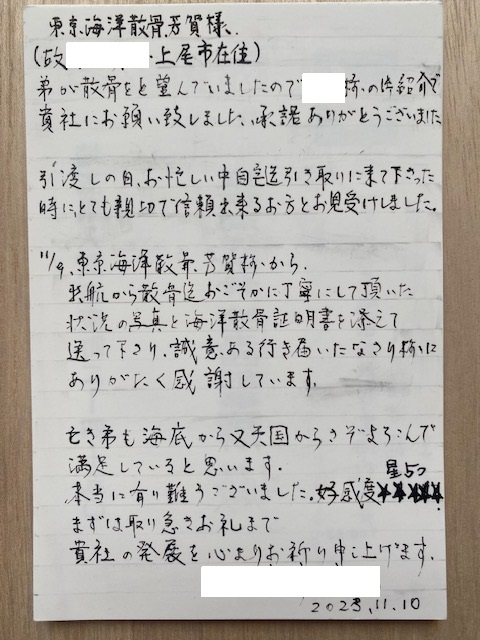 東京海洋散骨、芳賀様、
(故 ・上尾市在住)
弟が散骨をと望んでいましたので 様の御紹介で
貴社にお願い致しました、承諾ありがとうございました
引渡しの日、お忙しい中自宅迄引き取りに来て下さった
時に、とても親切で信頼出来るお方とお見受けしました。
11/9、東京海洋散骨、芳賀様から、
出航から散骨迄おごそかに丁寧にして頂いた
状況の写真と海洋散骨証明書を添えて
送って下さり、誠意ある行き届いたなさり様に
ありがたく感謝しています。
亡き弟も海底から又天国からさぞよろこんで
満足していると思います。
星5つ
本当に有り難うございました。好感度★★★★★
まずは取り急ぎお礼まで
貴社の発展を心よりお祈り申し上げます。
2023.11.10